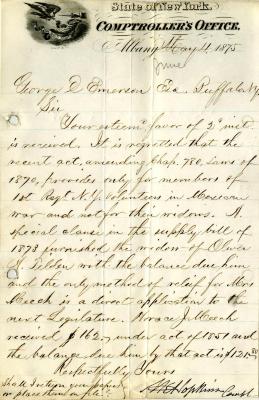 State of New York.
COMPTROLLER'S OFFICE.
Albany May 4 1875
June
George D. Emerson Esq. Buffalo N.Y.
Sir
Your esteem'd favor of 2d inst
is received. It is regretted that the
recent act, amending Chap. 780, Laws of
1870, provides only for members of
1st Regt N.Y. Volunteers in Mexican
war and not for their widows. A
special clause in the supply bill of
1873 furnished the widow of Oliver
S. Tilden with the balance due him
and the only method of relief for Mrs
Meech is a direct application to the
next Legislature. Horace J. Meech
received $162, under act of 1851 and
the balance due him by that act is $121
Respectfully Yours
Shall I return your papers
or place them on file?
Hopkins Compt